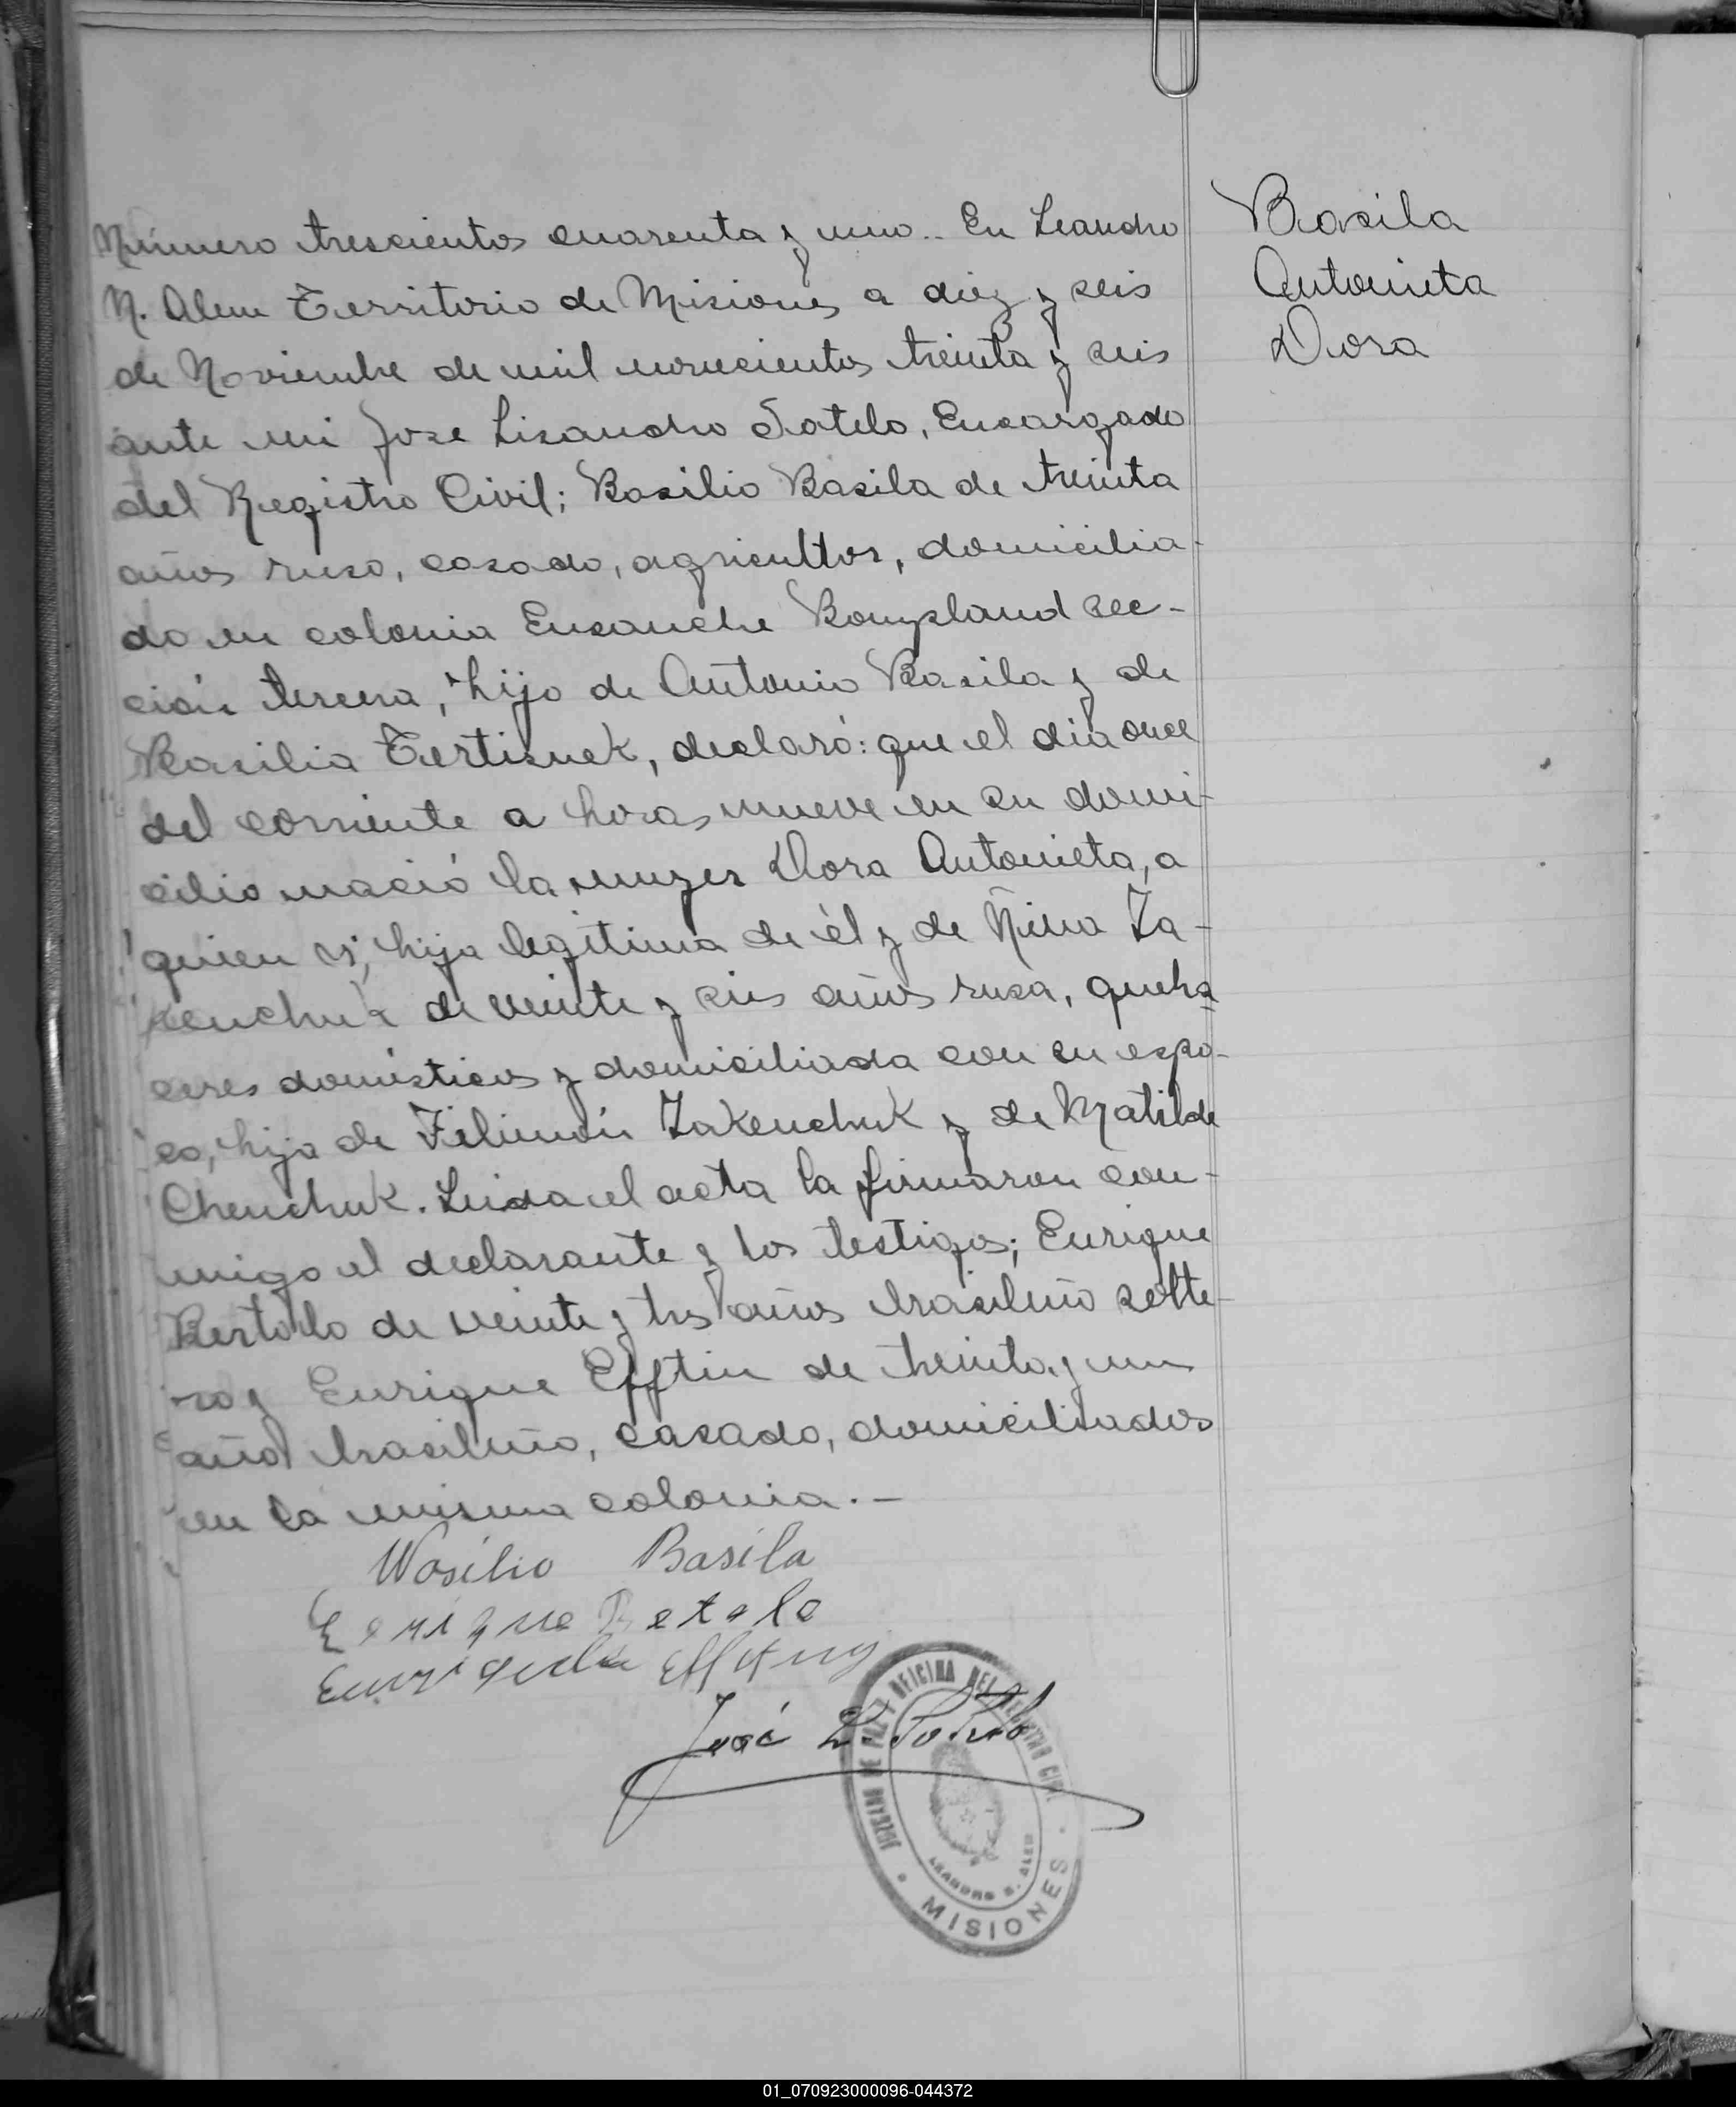 Número trescientos cuarenta y uno.. En Leandro
N. Alem Territorio de Misiones a diez y seis
de Noviembre de mil novecientos treinta y seis
ante mi Jose Lisandro Sotelo, Encargado
del Registro Civil; Basilio Basila de treinta
años ruso, casado, agricultor, domicilia-
do en colonia Ensanche Bompland sec-
ción tercera, hijo de Antonio Basila y de
Basilia Tertisnek, declaró: que el dia once
del corriente a horas nueve en su domi-
cilio nació la mujer Dora Antonieta, a
quien vi, hija legitima de él y de Nina Za-
kenchuk de veinte y seis años rusa, queha
ceres domésticos y domiciliada con su espo-
so, hija de Filimón Zakenchuk y de Matilde
Chenchuk. Leida el acta la firmaron con-
migo el declarante y los testigos; Enrique
Bertolo de veinte y tres años brasileño solte-
ro y Enrique Efftin de treinta y un
años brasileño, casado, domiciliados
en la misma colonia.-
Wosilio Basila
Enrique Betolo
Effting
José L. Sotelo
JUZGADO DE PAZ Y OFICINA DEL REGISTRO CIVIL
LEANDRO N. ALEM
MISIONES
Basila
Antonieta
Dora
01_070923000096-044372